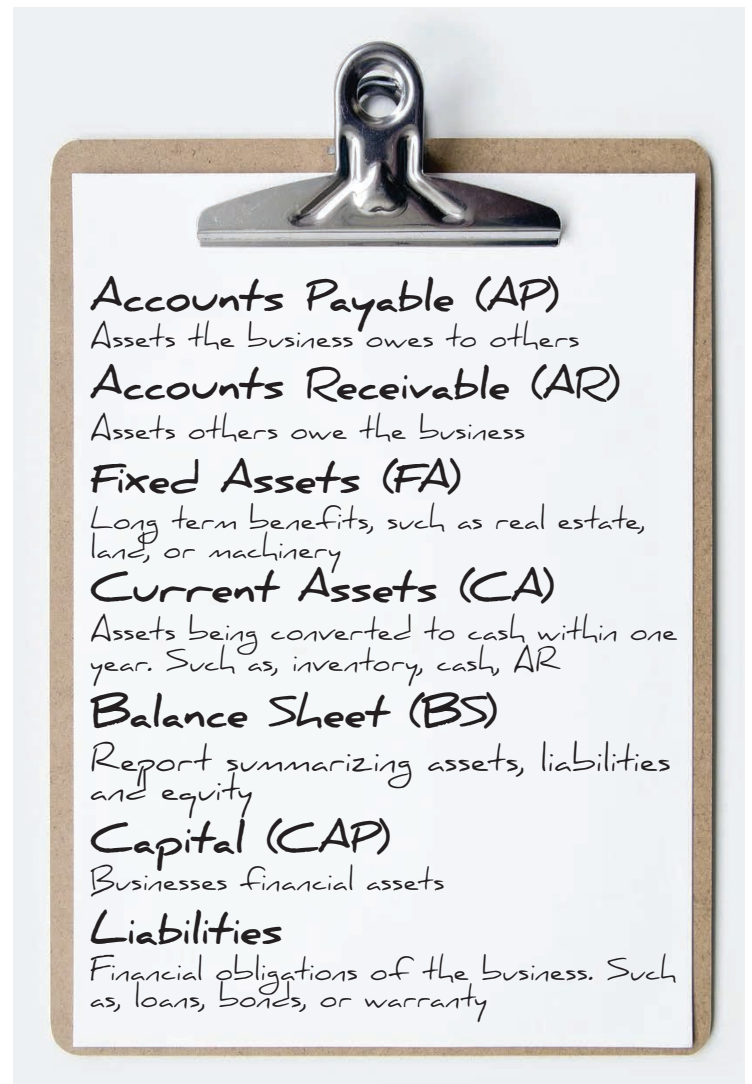 Accounts Payable (AP)
Assets the business owes to others
Accounts Receivable (AR)
Assets others owe the business
Fixed Assets (FA)
Long term benefits, such as real estate,
land, or machinery
Current Assets (CA)
Assets being converted to cash within one
year. Such as, inventory, cash, AR
Balance Sheet (BS)
Report summarizing assets, liabilities
and equity
Capital (CAP)
Businesses financial assets
Liabilities
Financial obligations of the business. Such
as, loans, bonds, or warranty